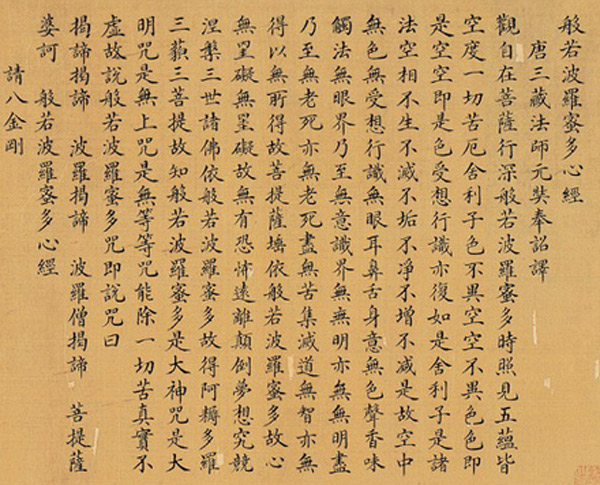 般若波羅蜜多心經
唐三藏法師元奘奉詔譯
觀自在菩薩行深般若波羅蜜多時照見五蘊皆
空度一切苦厄舍利子色不異空空不異色色即
是空空即是色受想行識亦復如是舍利子是諸
法空相不生不滅不垢不淨不增不減是故空中
無色無受想行識無眼耳鼻舌身意無色聲香味
觸法無眼界乃至無意識界無無明亦無無明盡
乃至無老死亦無老死盡無苦集滅道無智亦無
得以無所得故菩提薩埵依般若波羅蜜多故心
無罣礙無罣礙故無有恐怖遠離顛倒夢想究竟
涅槃三世諸佛依般若波羅蜜多故得阿耨多羅
三藐三菩提故知般若波羅蜜多是大神咒是大
明咒是無上咒是無等等咒能除一切苦真實不
虛故說般若波羅蜜多咒即說咒曰
揭諦揭諦　波羅揭諦　波羅僧揭諦　菩提薩
婆訶　般若波羅蜜多心經
請八金剛